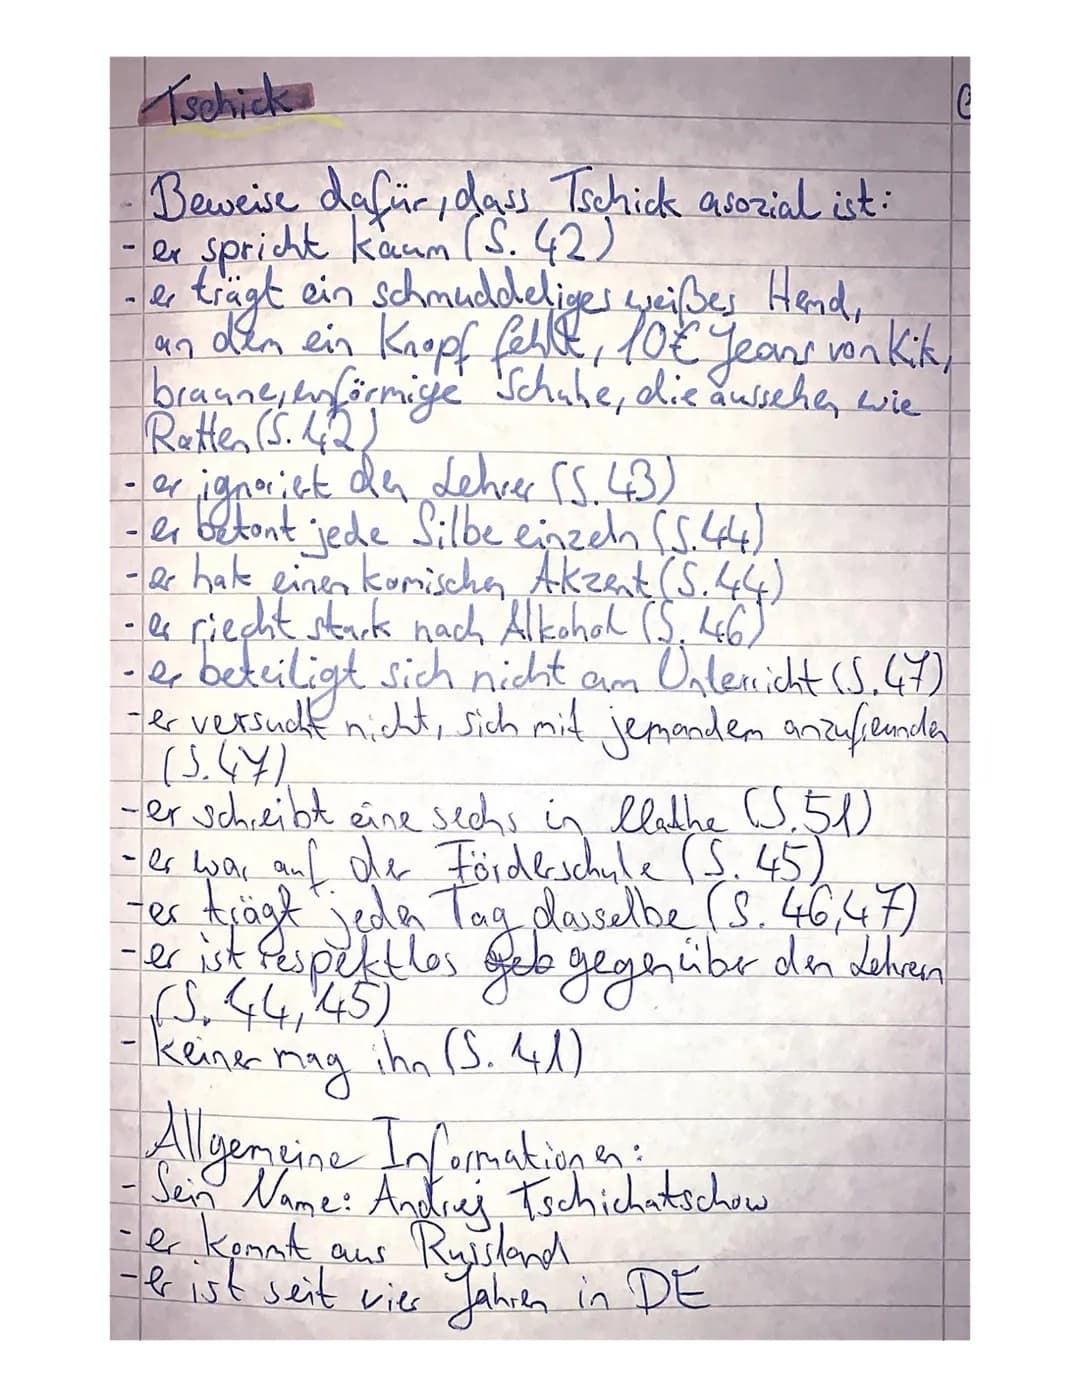 Tschick
Beweise dafür, dass Tschick asozial ist:
- er spricht kaum (S. 42)
- er trägt ein schmuddeliges weißes Hemd,
an dem ein Knopf fehlt, 10€ Jeans von Kik,
braune, unförmige Schuhe, die aussehen wie
Ratten (S. 42)
- er ignoriert den Lehrer (S. 43)
- er betont jede Silbe einzeln (S. 44)
- er hat einen komischen Akzent (S. 44)
- er riecht stark nach Alkohol (S. 46)
- er beteiligt sich nicht am Unterricht (S. 47)
- er versucht nicht, sich mit jemandem anzufreunden
(S. 47)
- er schreibt eine sechs in Mathe (S. 51)
- er war auf der Förderschule (S. 45)
- er trägt jeden Tag dasselbe (S. 46, 47)
- er ist respektlos gegenüber den Lehrern
(S. 44, 45)
- keiner mag ihn (S. 41)
Allgemeine Informationen:
- Sein Name: Andrej Tschichatschow
- er kommt aus Russland
- er ist seit vier Jahren in DE